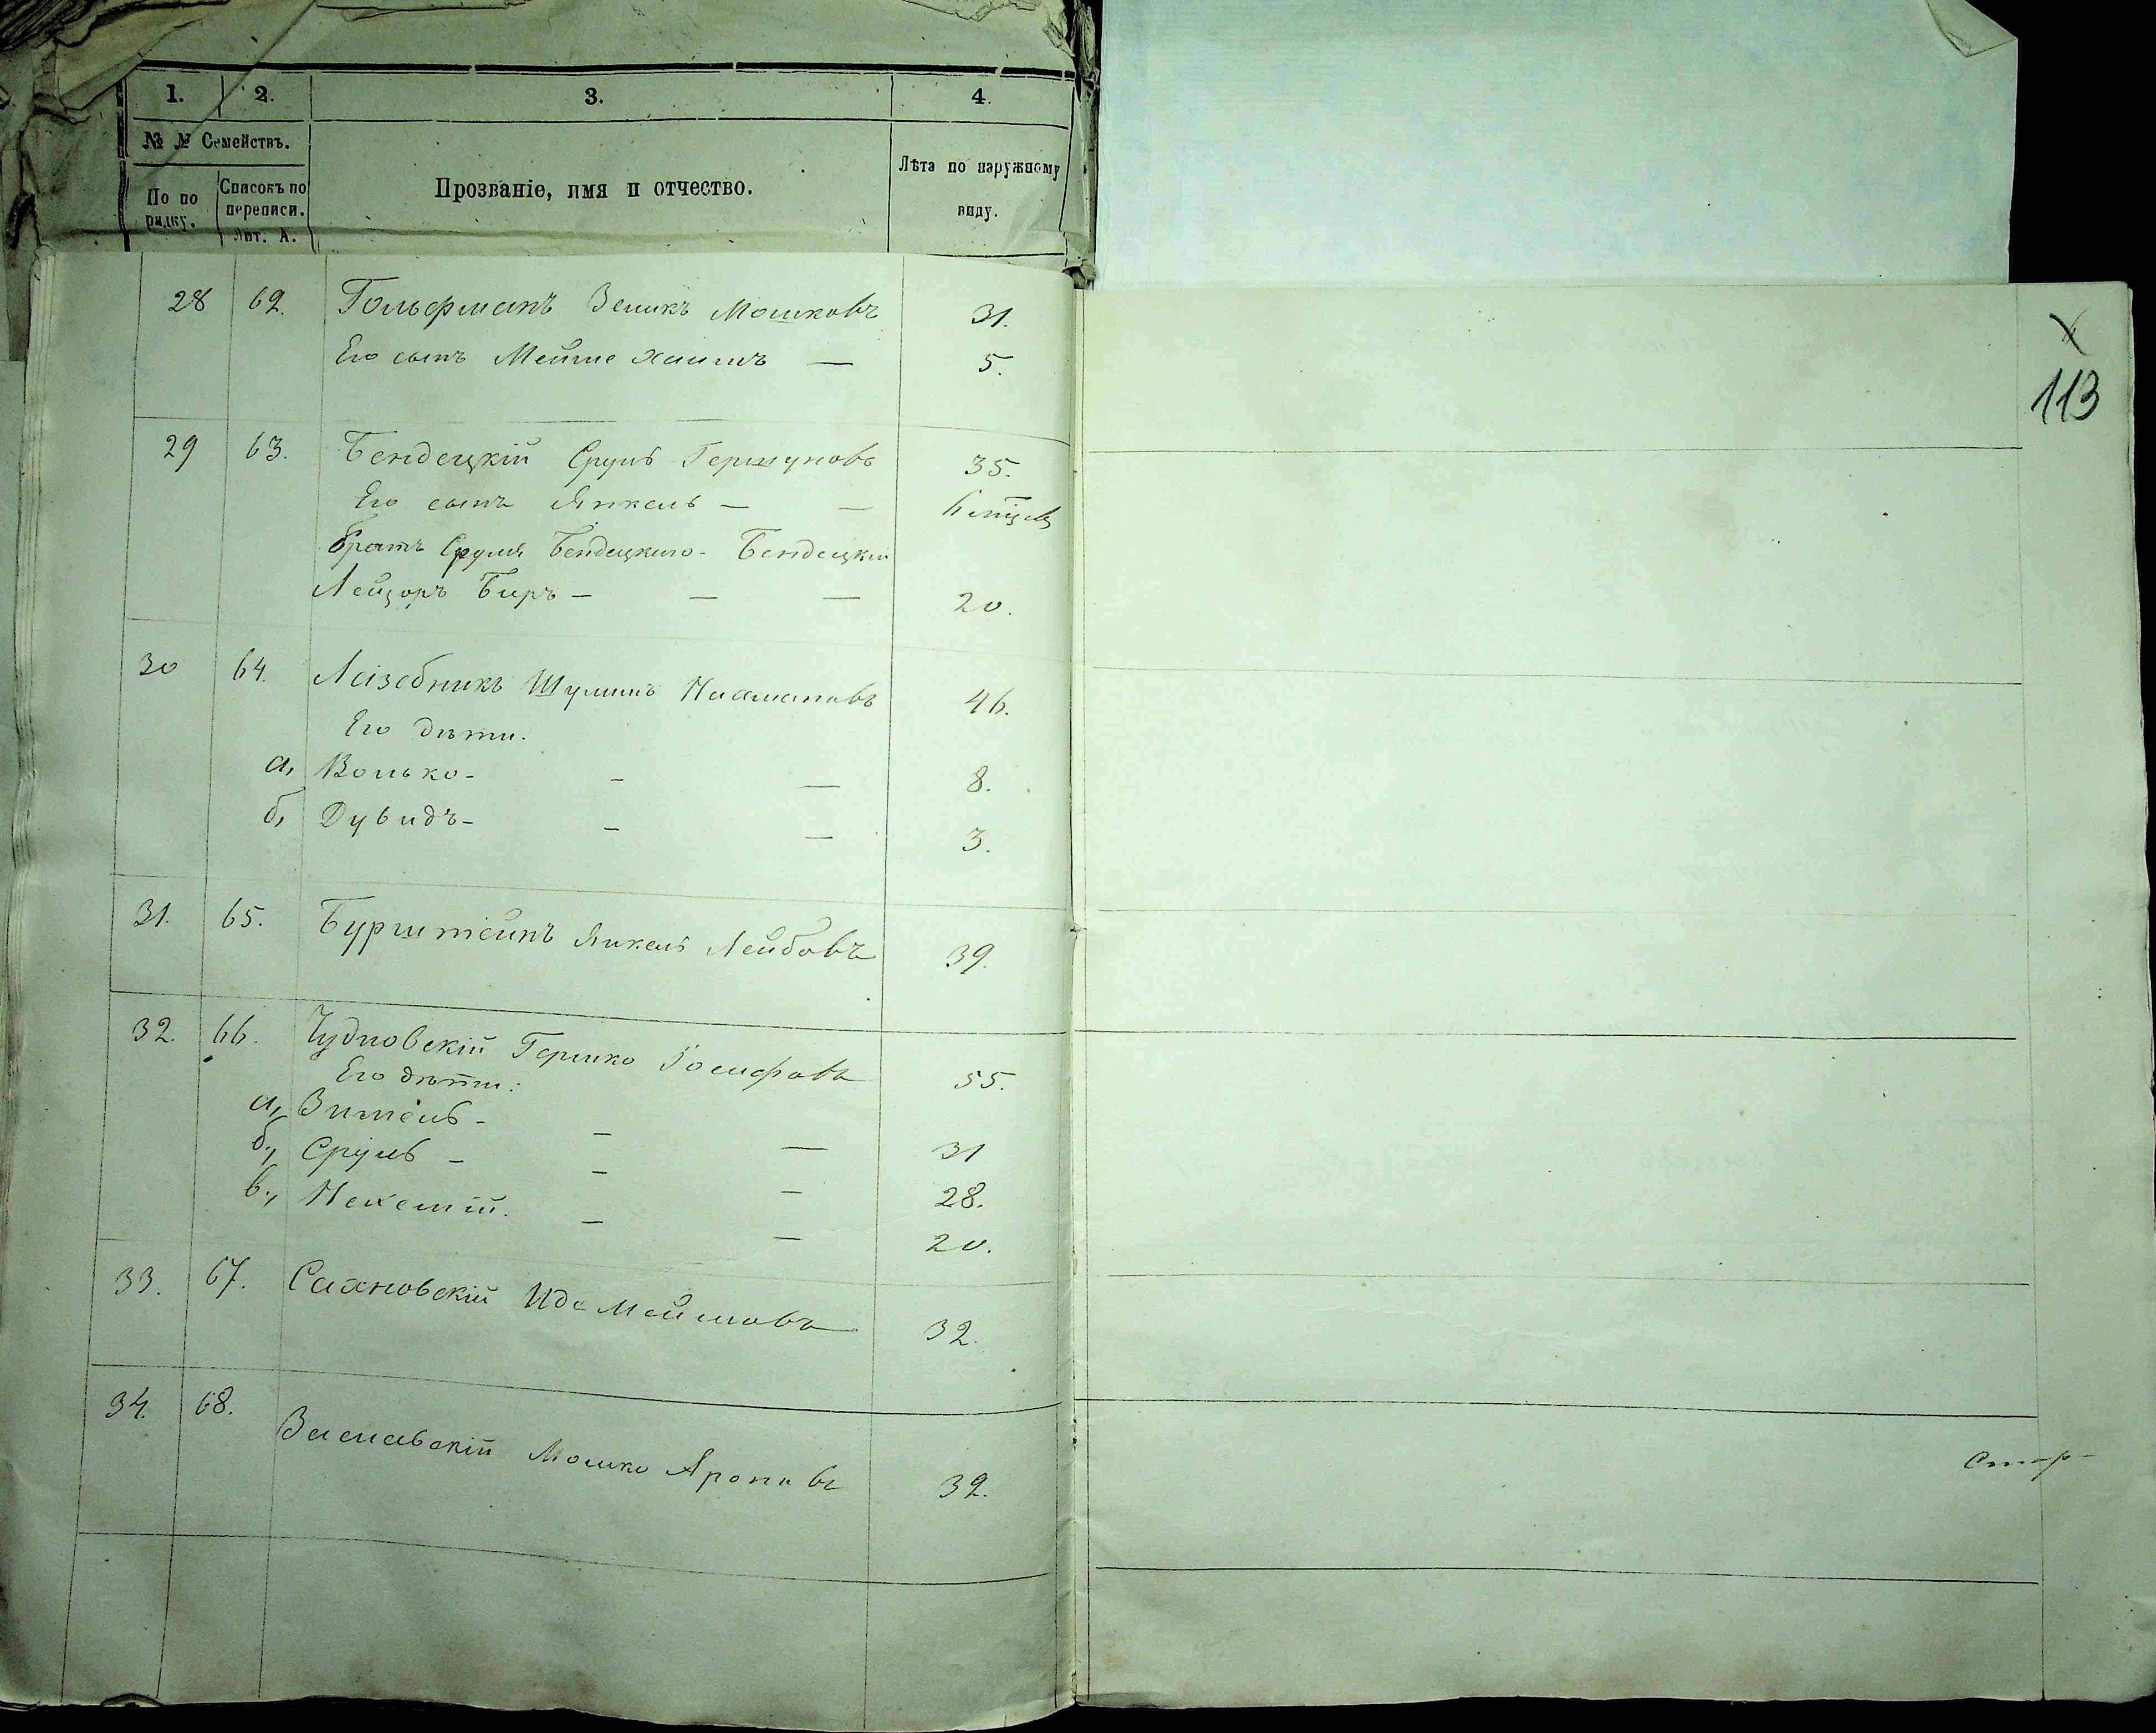 1. 2. 3. 4.
№ № Семействъ.
По по рядку. Списокъ по переписи. Лит. А. Прозваніе, имя и отчество. Лѣта по наружному виду.
113
28 62. Гольфманъ Зеликъ Мошковъ 31.
Его сынъ Мейше Хаимъ — 5.
29 63. Бендецкій Сруль Гершуновъ 35.
Его сынъ Янкель — — 6 мѣсяц
Братъ Сруля Бендецкаго - Бендецкій
Лейзоръ Беръ — — — 20.
30 64. Лазебникъ Шулимъ Нахмановъ 46.
Его дѣти.
а, Волько - - — 8.
б, Дувидъ - - — 3.
31. 65. Бурштейнъ Янкель Лейбовъ 39.
32. 66. Чудновскій Гершко Іосифовъ 55.
Его дѣти:
а, Зитель - — — 31
б., Сруль - - - 28.
в., Нехемій. — — 20.
33. 67. Сахновскій Идо Мейшовъ 32.
34. 68. Заславскій Мошко Ароновъ 39.